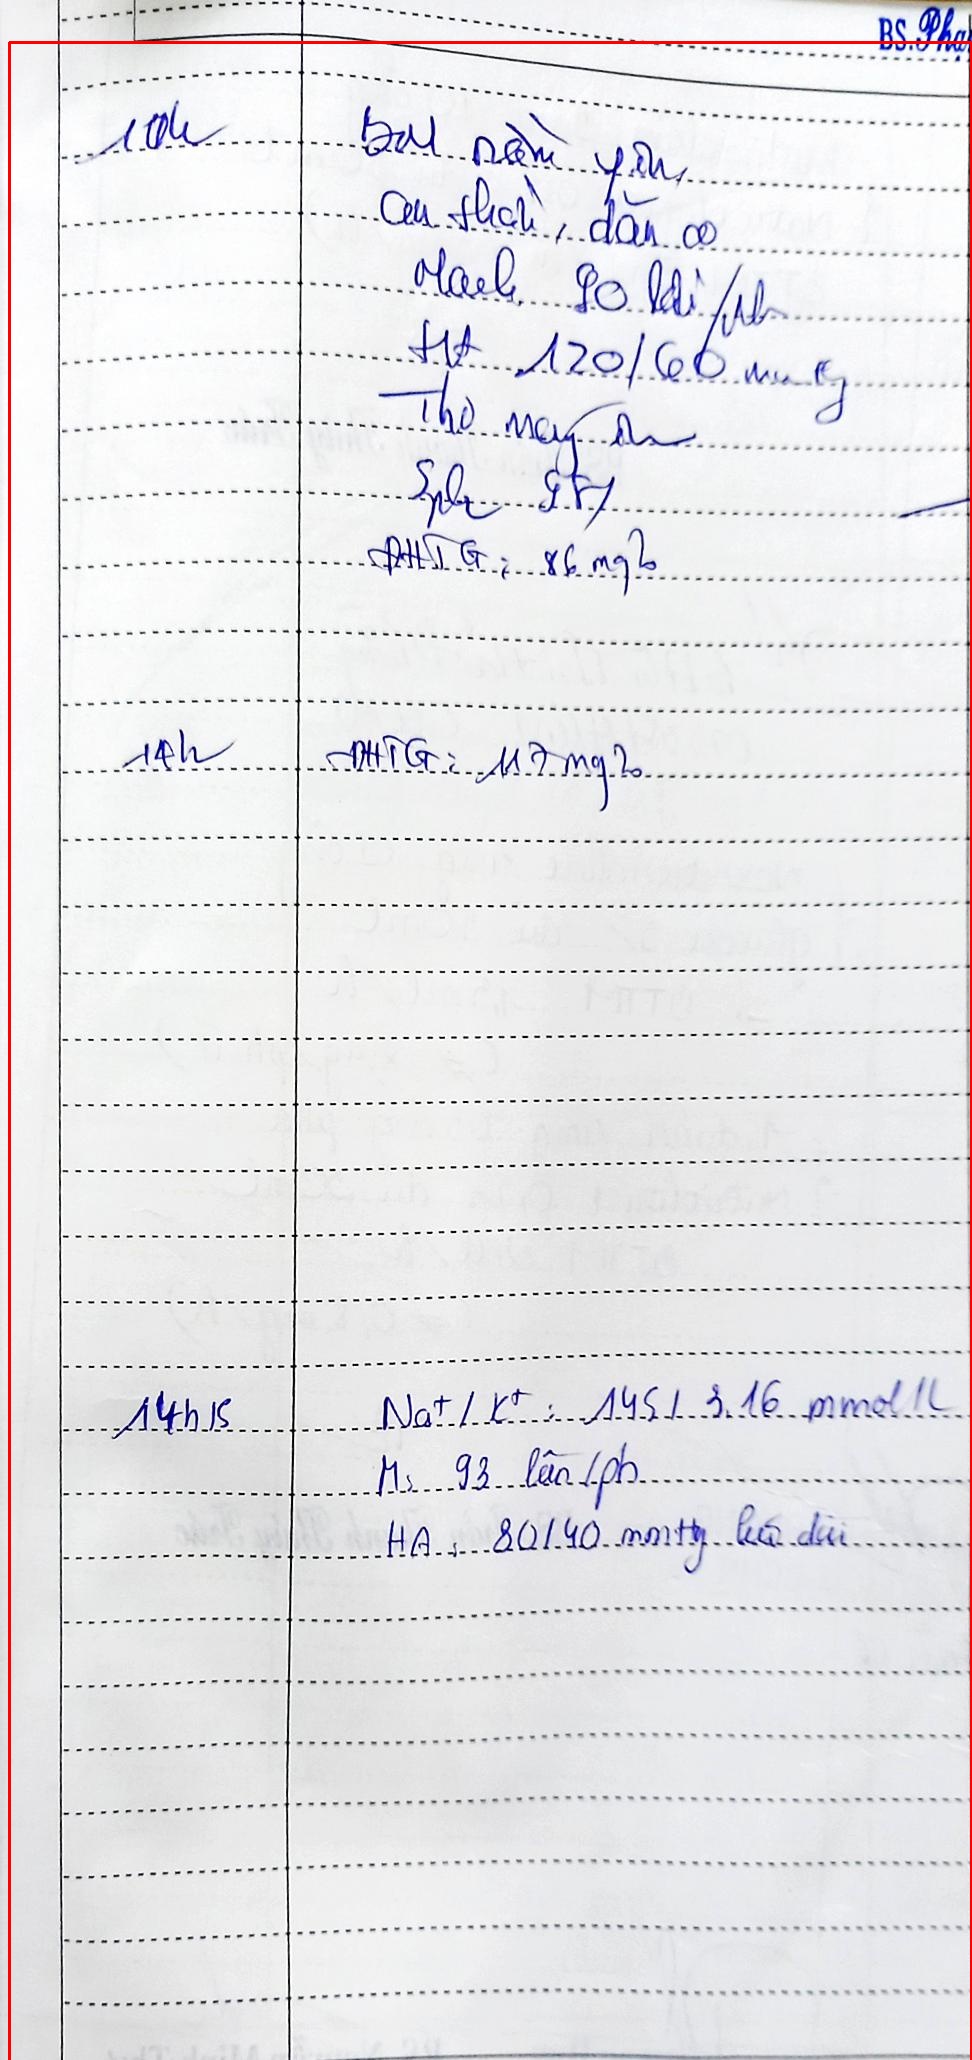 BS. Phạ
10h BN nằm yên,
an thần, dãn cơ
Mạch 90 lần/ph
HA 120/60 mmHg
Thở máy êm
SpO2 98%
ĐHTG: 86 mg%
14h ĐHTG: 117 mg%
14h15 Na+/K+: 145/3.16 mmol/L
M: 93 lần/ph
HA: 80/40 mmHg kéo dài